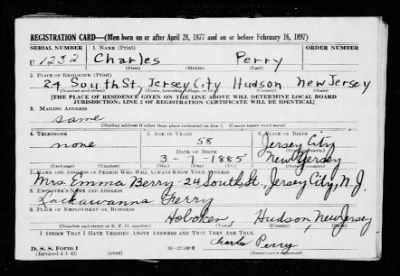 REGISTRATION CARD—(Men born on or after April 28, 1877 and on or before February 16, 1897)
SERIAL NUMBER 1. NAME (Print) ORDER NUMBER
U 1232 Charles Perry
(First) (Middle) (Last)
2. PLACE OF RESIDENCE (Print)
24 South St. Jersey City Hudson New Jersey
(Number and street) (Town, township, village, or city) (County) (State)
[THE PLACE OF RESIDENCE GIVEN ON THE LINE ABOVE WILL DETERMINE LOCAL BOARD
JURISDICTION; LINE 2 OF REGISTRATION CERTIFICATE WILL BE IDENTICAL]
3. MAILING ADDRESS
same
(Mailing address if other than place indicated on line 2. If same insert word same)
4. TELEPHONE 5. AGE IN YEARS 6. PLACE OF BIRTH
none 58 Jersey City
DATE OF BIRTH (Town or county)
3-7-1885 New Jersey
(Exchange) (Number) (Mo.) (Day) (Yr.) (State or country)
7. NAME AND ADDRESS OF PERSON WHO WILL ALWAYS KNOW YOUR ADDRESS
Mrs. Emma Berry-24 South St., Jersey City, N.J.
8. EMPLOYER'S NAME AND ADDRESS
Lackawanna Ferry
9. PLACE OF EMPLOYMENT OR BUSINESS
Hoboken, Hudson, New Jersey
(Number and street or R. F. D. number) (Town) (County) (State)
I AFFIRM THAT I HAVE VERIFIED ABOVE ANSWERS AND THAT THEY ARE TRUE.
D. S. S. Form 1 Charles Perry
(Revised 4-1-42)